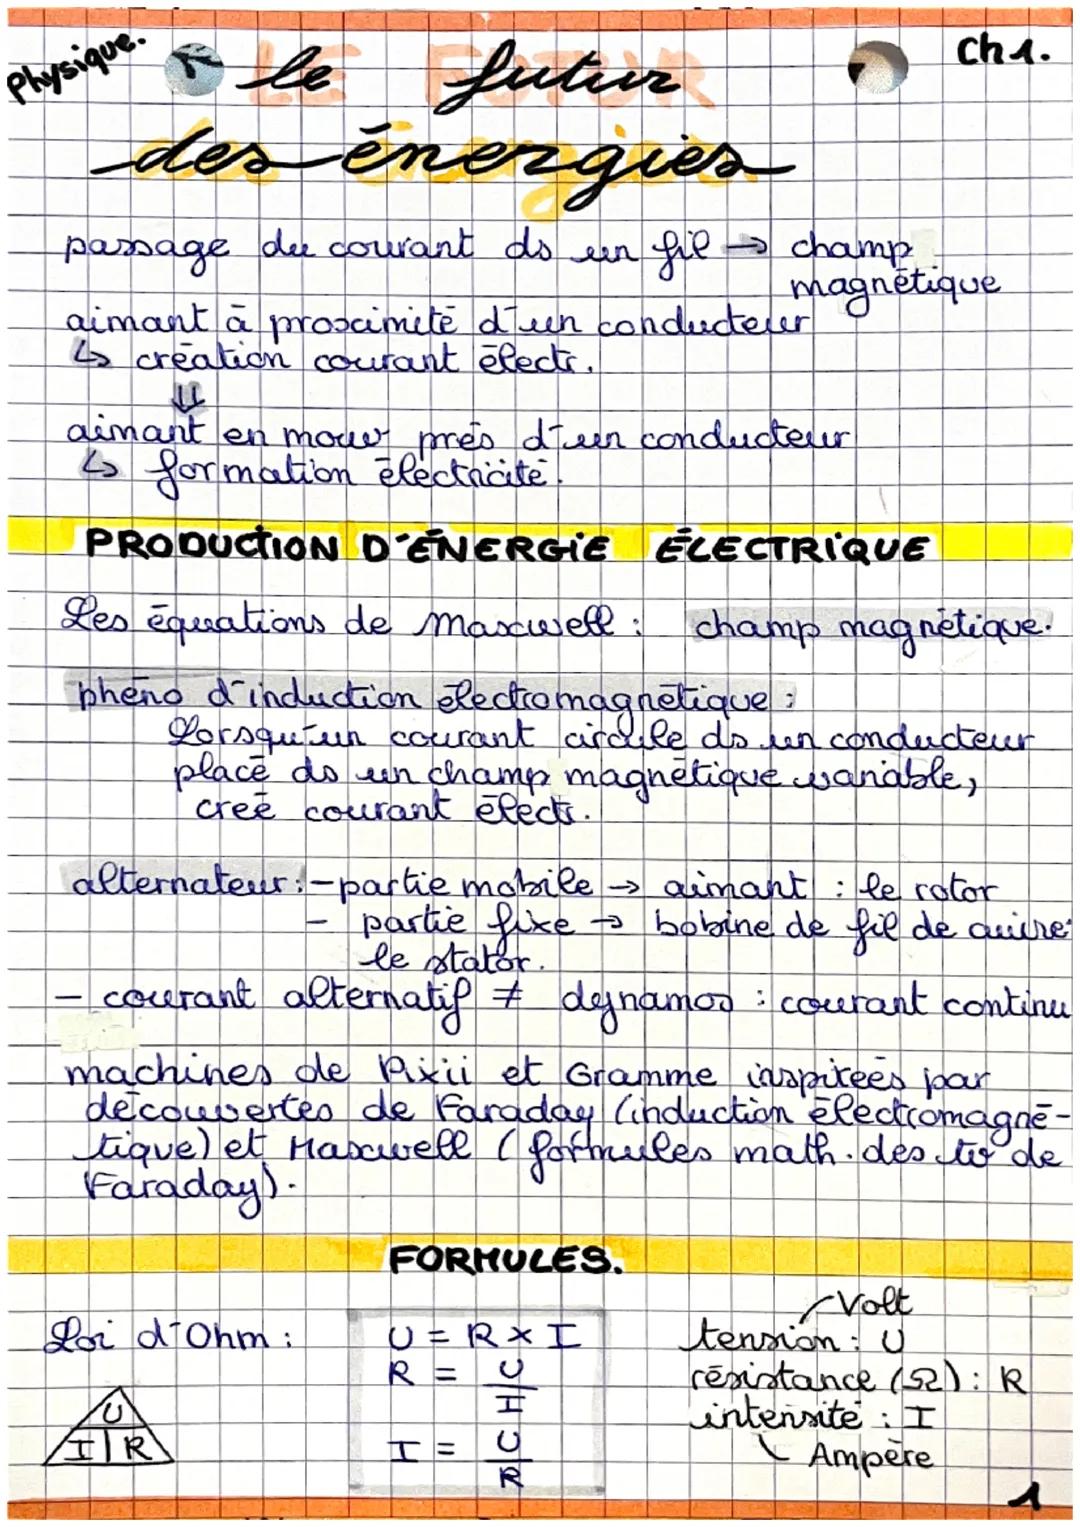 Physique.
Ch 1.
LE FUTUR
le futur
des énergies
passage du courant ds un fil → champ
magnétique
aimant à proximité d'un conducteur
↳ création courant électr.
⇓
aimant en mouv près d'un conducteur
↳ formation électricité.
PRODUCTION D'ÉNERGIE ÉLECTRIQUE
Les équations de Maxwell : champ magnétique.
phéno d'induction électromagnétique :
Lorsqu'un courant circule ds un conducteur
placé ds un champ magnétique variable,
creé courant électr.
alternateur : - partie mobile → aimant : le rotor
- partie fixe → bobine de fil de cuivre
le stator.
- courant alternatif ≠ dynamos : courant continu
machines de Pixii et Gramme inspirées par
découvertes de Faraday (induction électromagné-
tique) et Maxwell (formules math. des tv de
Faraday).
FORMULES.
Loi d'Ohm :
U = R × I
R = U/I
I = U/R
U
I | R
Volt
tension : U
résistance (Ω) : R
intensité : I
Ampère
1